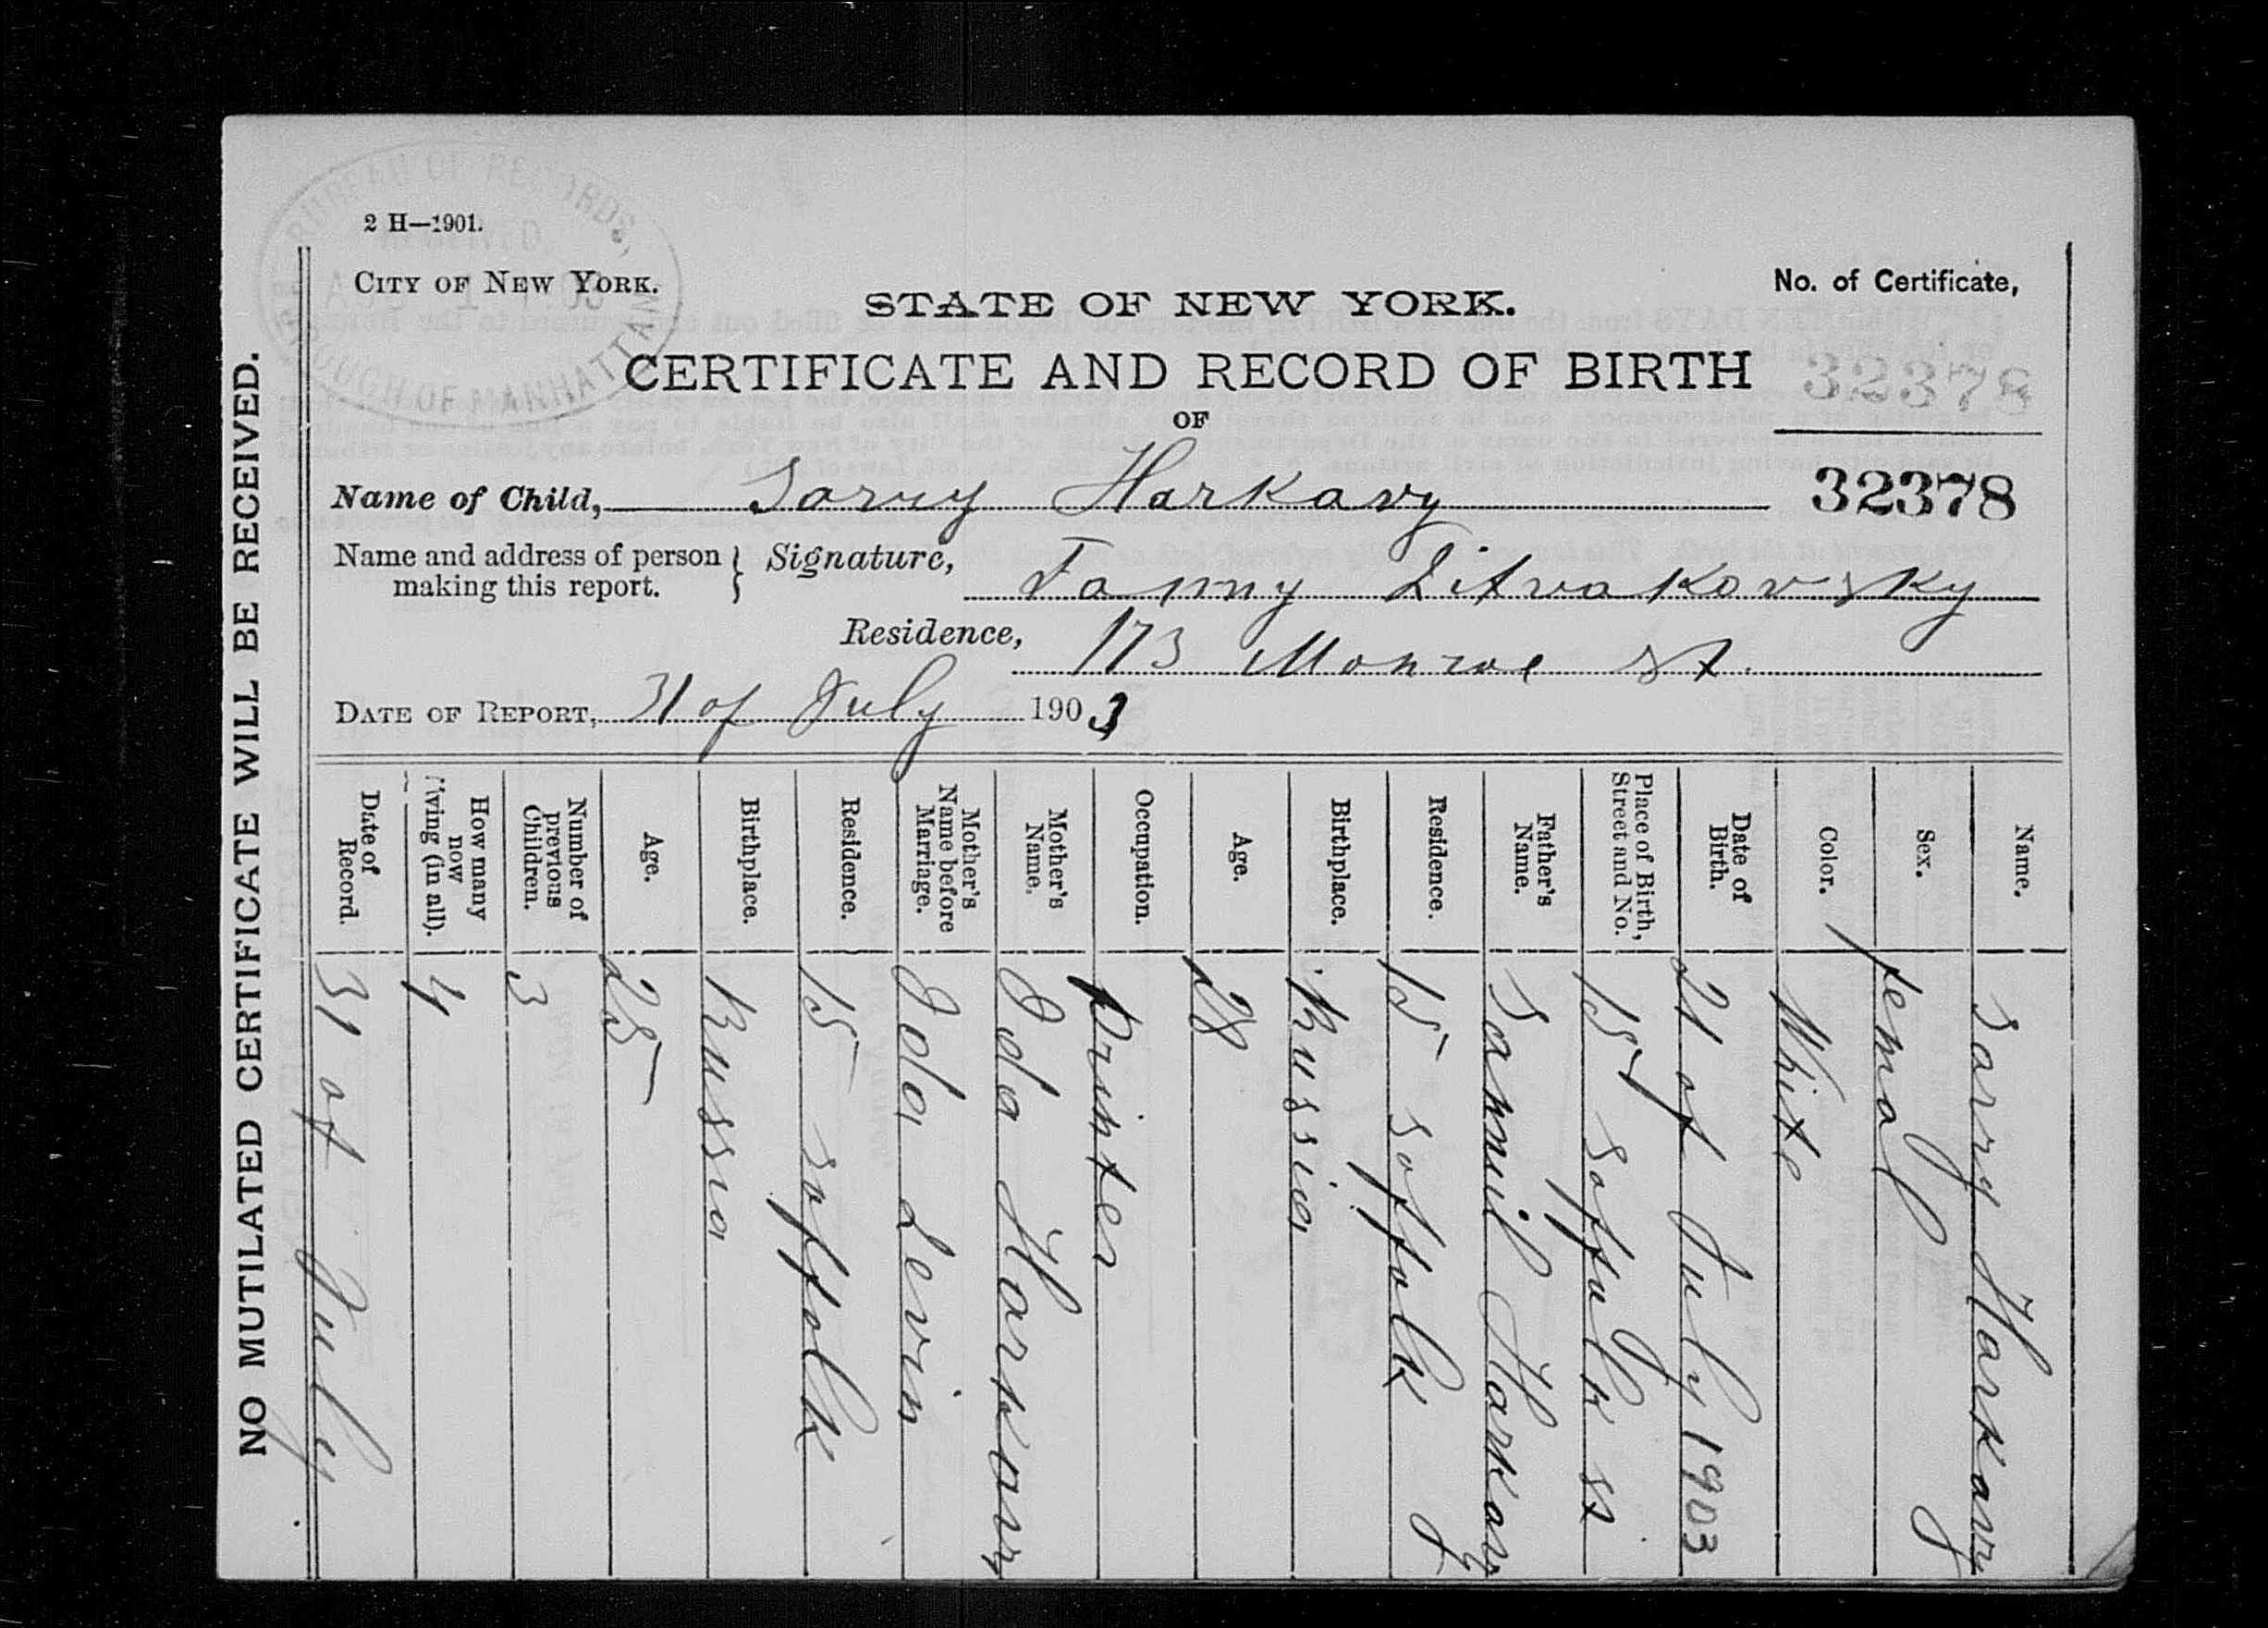 2 H—1901.
CITY OF NEW YORK.
STATE OF NEW YORK.
No. of Certificate,
CERTIFICATE AND RECORD OF BIRTH
32378
OF
Name of Child, Sarry Harkavy
32378
Name and address of person making this report. } Signature, Fanny Litvakovsky
Residence, 173 Monroe st.
DATE OF REPORT, 31 of July 1903
Name. Sarry Harkavy
Sex. femal
Color. White
Date of Birth. 21 of July 1903
Place of Birth, Street and No. 15 Soffulk st
Father's Name. Sammil Harkavy
Residence. 15 Soffulk
Birthplace. Russia
Age. 28
Occupation. Printer
Mother's Name. Ida Harkavy
Mother's Name before Marriage. Ida Levin
Residence. 15 Soffolk
Birthplace. Russia
Age. 25
Number of previous Children. 3
How many now living (in all). 4
Date of Record. 31 of July
NO MUTILATED CERTIFICATE WILL BE RECEIVED.
BUREAU OF RECORDS,
BOROUGH OF MANHATTAN